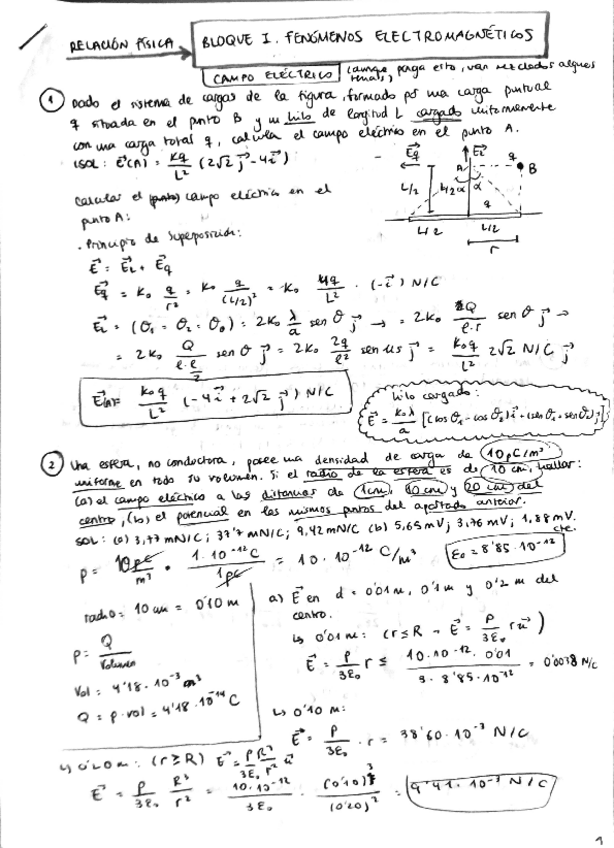 RELACIÓN FÍSICA → BLOQUE I. FENÓMENOS ELECTROMAGNÉTICOS
CAMPO ELÉCTRICO (aunque ponga esto, van mezclados algunos temas)
① Dado el sistema de cargas de la figura, formado por una carga puntual
q situada en el punto B y un hilo de longitud L cargado uniformemente
con una carga total q, calcula el campo eléctrico en el punto A.
(SOL: E⃗(A) = Kq/L² (2√2 j⃗ - 4i⃗)
Calcular el campo eléctrico en el
punto A:
· Principio de superposición:
E⃗ = E⃗L + E⃗q
E⃗q = K₀ q/r² = K₀ q/(L/2)² = K₀ 4q/L² · (-i⃗) N/C
E⃗L = (θ₁ = θ₂ = θ₀) = 2K₀ λ/a sen θ j⃗ → = 2K₀ Q/(l·r) sen θ j⃗ →
= 2K₀ Q/(l·l/2) sen θ j⃗ = 2K₀ 2q/l² sen 45 j⃗ = K₀q/L² 2√2 N/C j⃗
E⃗(A) = K₀q/L² (-4i⃗ + 2√2 j⃗) N/C
E⃗q E⃗L A q B
L/2 L/2 α α q
L/2 L/2
r
hilo cargado:
E⃗ = K₀λ/a [(cos θ₁ - cos θ₂)i⃗ + (sen θ₁ + sen θ₂)j⃗]
② Una esfera, no conductora, posee una densidad de carga de 10 pC/m³
uniforme en todo su volumen. Si el radio de la esfera es de 10 cm, hallar:
(a) el campo eléctrico a las distancias de 1cm, 10cm y 20 cm del
centro, (b) el potencial en los mismos puntos del apartado anterior.
SOL: (a) 3,77 mN/C; 37'7 mN/C; 9,42 mN/C (b) 5,65 mV; 3,76 mV; 1,88 mV.
cte.
ρ = 10pC/m³ · 1·10⁻¹² C/1pC = 10·10⁻¹² C/m³
ε₀ = 8'85·10⁻¹²
radio = 10 cm = 0'10 m
ρ = Q/Volumen
Vol = 4'18·10⁻³ m³
Q = ρ·vol = 4'18·10⁻¹⁴ C
a) E⃗ en d = 0'01 m, 0'1 m y 0'2 m del
centro.
↳ 0'01 m: (r ≤ R → E⃗ = ρ/3ε₀ r u⃗)
E⃗ = ρ/3ε₀ r = 10·10⁻¹²·0'01/3·8'85·10⁻¹² = 0'0038 N/C
↳ 0'10 m:
E⃗ = ρ/3ε₀ · r = 38'60·10⁻³ N/C
↳ 0'20 m: (r ≥ R) E⃗ = ρR³/3ε₀ r² u⃗
E⃗ = ρ/3ε₀ R³/r² = 10·10⁻¹²/3ε₀ · (0'10)³/(0'20)² = 9'41·10⁻³ N/C
1